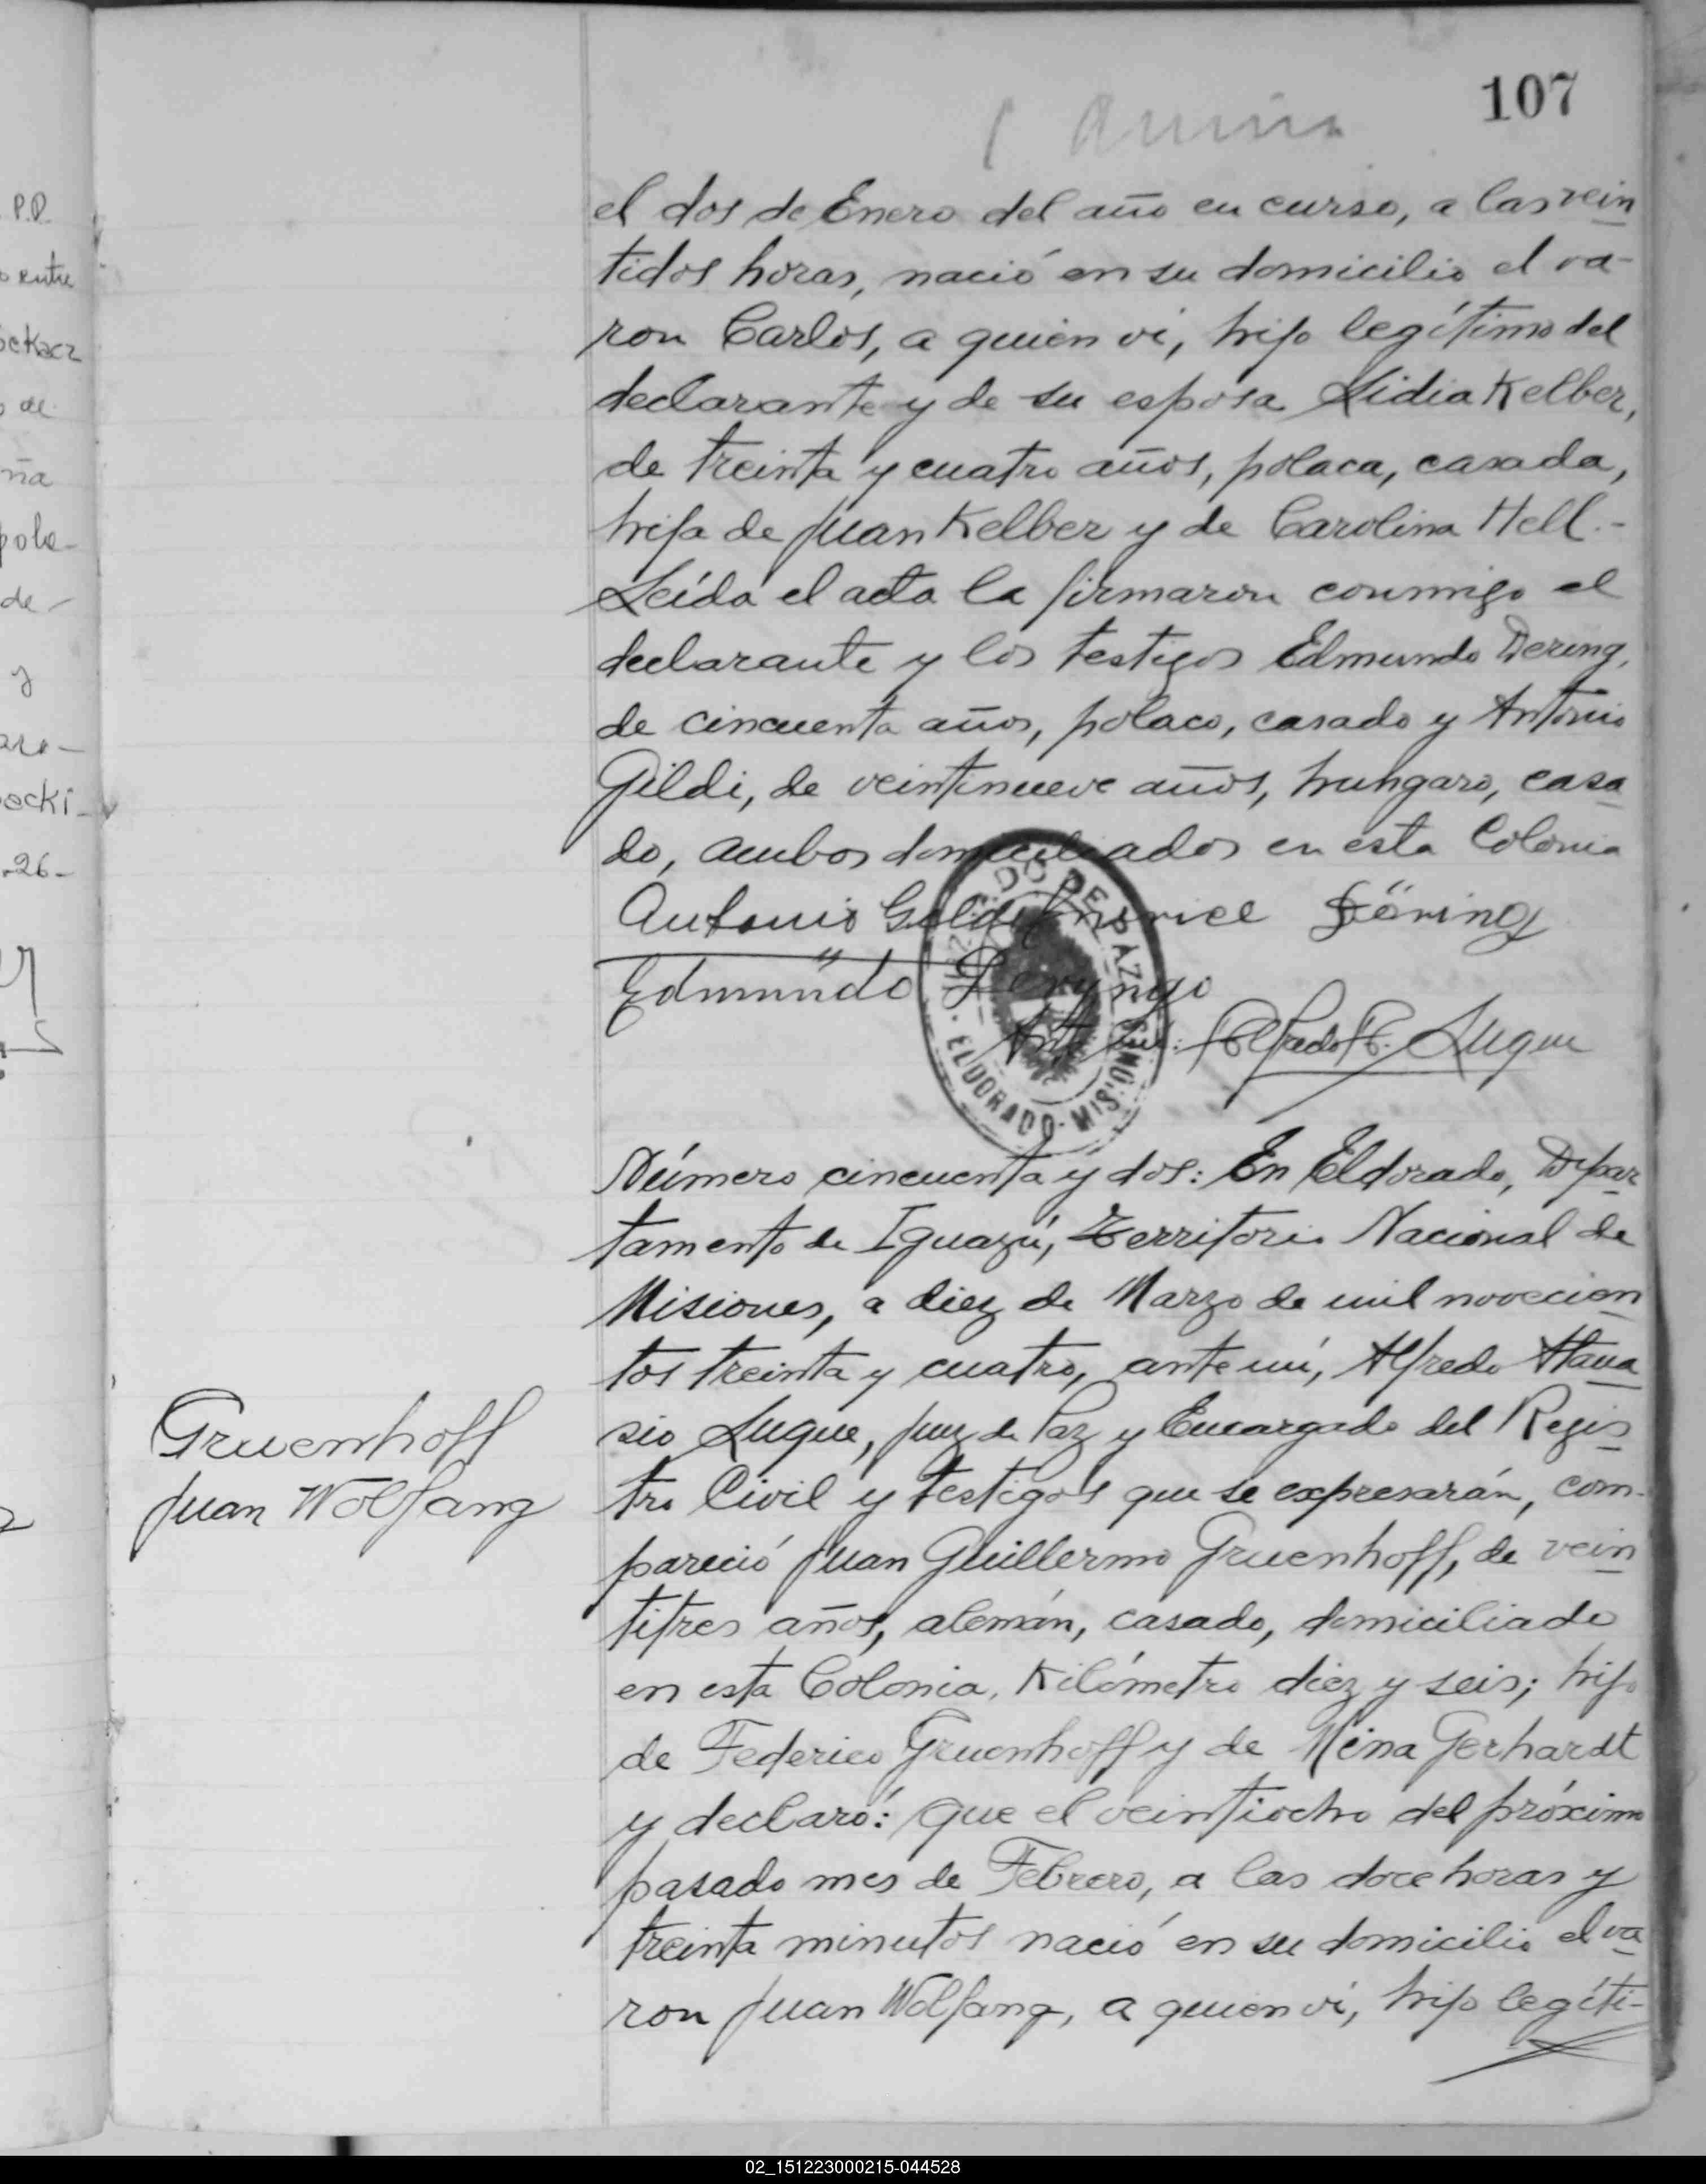 107
el dos de Enero del año en curso, a las vein
tidos horas, nació en su domicilio el va-
ron Carlos, a quien ví, hijo legítimo del
declarante y de su esposa Lidia Kelber,
de treinta y cuatro años, polaca, casada,
hija de Juan Kelber y de Carolina Hell.-
Leída el acta la firmaron conmigo el
declarante y los testigos Edmundo Dering,
de cincuenta años, polaco, casado y Antonio
Gildi, de veintinueve años, hungaro, casa
do, ambos domiciliados en esta Colonia
Antonio Gildi Döring
Edmundo
Ante mí: Alfredo A. Luque
DO DE PAZ
ELDORADO - MISIONES
Número cincuenta y dos: En Eldorado, Depar
tamento de Iguazú, Territorio Nacional de
Misiones, a diez de Marzo de mil novecien
tos treinta y cuatro, ante mí, Alfredo Atana
sio Luque, Juez de Paz y Encargado del Regis
tro Civil y testigos que se expresarán, com-
pareció Juan Guillermo Gruenhoff, de vein
titres años, alemán, casado, domiciliado
en esta Colonia, Kilómetro diez y seis; hijo
de Federico Gruenhoff y de Mina Gerhardt
y declaró: que el veintiocho del próximo
pasado mes de Febrero, a las doce horas y
treinta minutos nació en su domicilio el va
ron Juan Wolfang, a quien ví, hijo legíti-
Gruenhoff
Juan Wolfang
P.P.
entre
de
ña
pola-
de-
y
26-
02_151223000215-044528